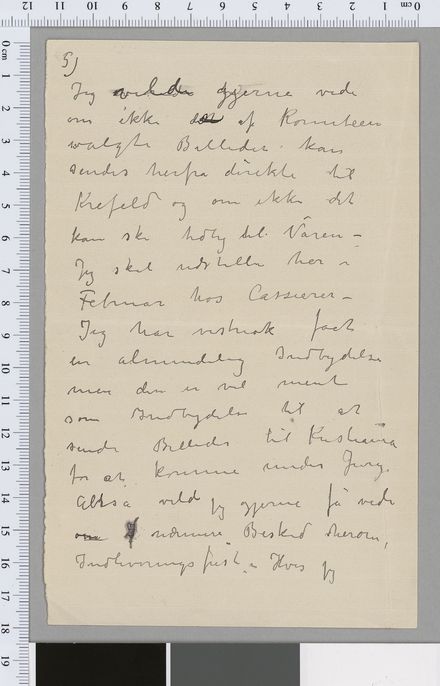 5)
Jeg vilde gjerne vide
om ikke det af Komiteen
valgte Billeder kan
sendes herfra direkte til
Krefeld og om ikke det
kan ske tidlig til Våren –
Jeg skal udstille her i
Februar hos Cassierer –
Jeg har vistnok faat
en almindelig Indbydelse
men den er vel ment
som Indbydelse til at
sende Billeder til Kristiania
for at komme under Jury.
Altsa vild jeg gjerne få vide
om nærmere Besked herom,
Indleverings frist – Hvis jeg